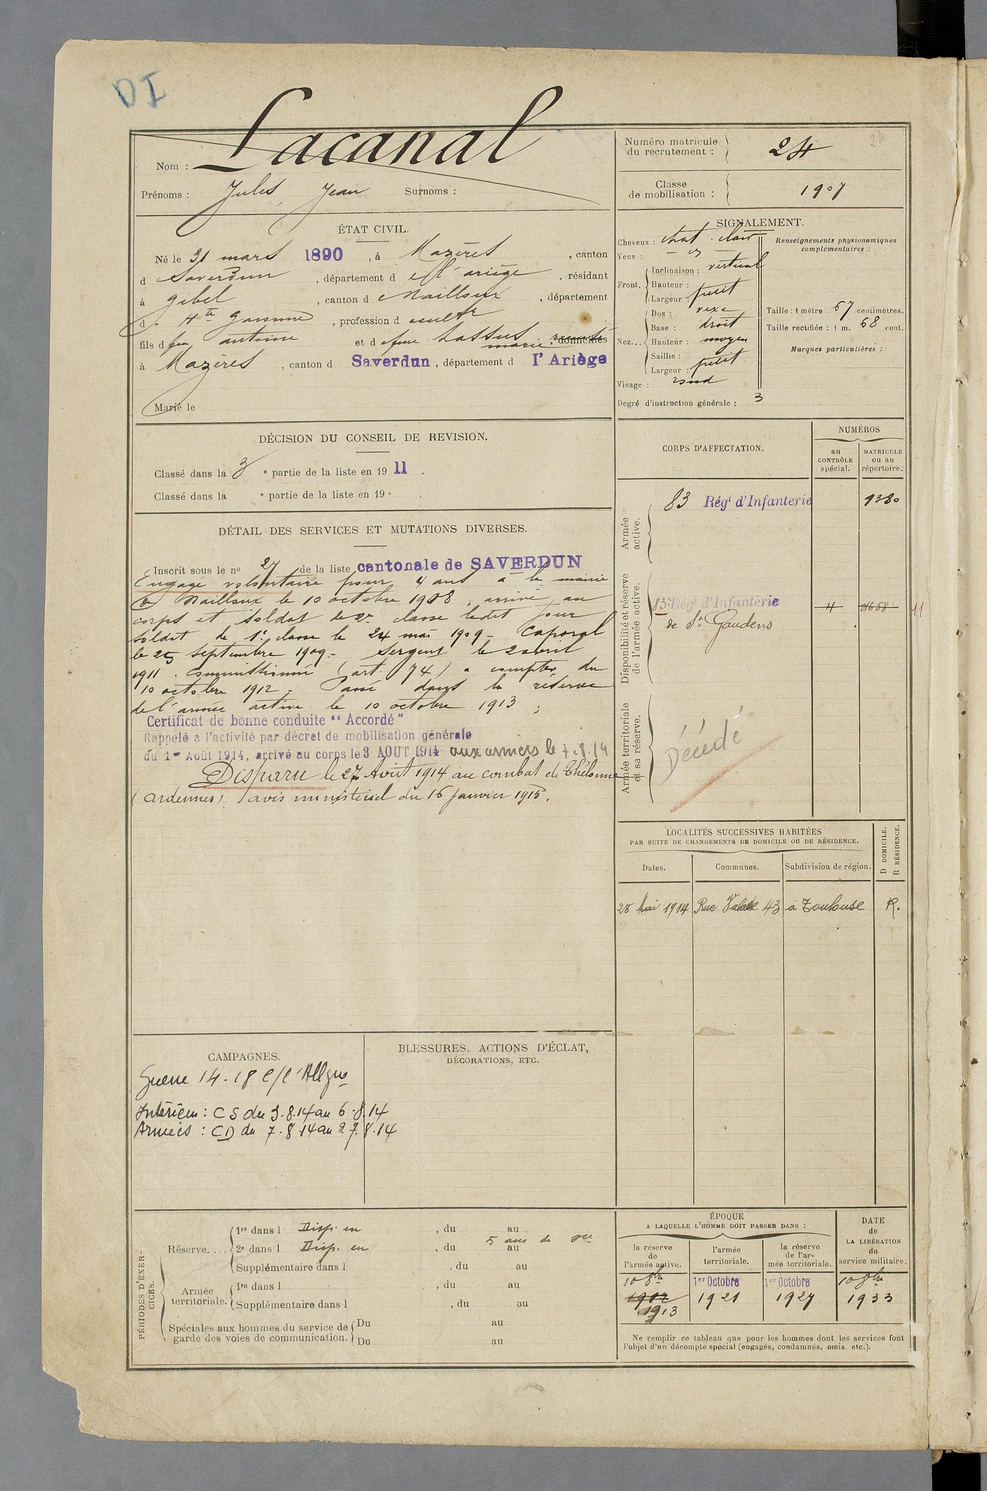 DI
Nom : Lacanal
Prénoms : Jules, Jean Surnoms :
Numéro matricule du recrutement : 24
Classe de mobilisation : 1907
ÉTAT CIVIL.
Né le 31 mars 1890, à Mazères, canton
d Saverdun, département d e l'ariège, résidant
à gibel, canton d e Nailloux, département
d. Hte Garonne, profession d cultr
fils d feu antoine et d efeue Lassus marie, domiciliés
à Mazères, canton d Saverdun, département d l'Ariège
Marié le
SIGNALEMENT.
Cheveux : chat. clair
Yeux :
Front. Inclinaison : vertical
Hauteur :
Largeur : petit
Nez... Dos : vexe
Base : droit
Hauteur : moyen
Saillie :
Largeur : petit
Visage : rond
Degré d'instruction générale : 3
Renseignements physionomiques complémentaires :
Taille : 1 mètre 67 centimètres.
Taille rectifiée : 1 m. 68 cent.
Marques particulières :
DÉCISION DU CONSEIL DE REVISION.
Classé dans la 3e partie de la liste en 1911.
Classé dans la e partie de la liste en 19 .
DÉTAIL DES SERVICES ET MUTATIONS DIVERSES.
Inscrit sous le no 27 de la liste cantonale de SAVERDUN
Engagé volontaire pour 4 ans à la mairie
de Nailloux le 10 octobre 1908. arrivé au
corps et soldat de 2e classe ledit jour
soldat de 1e classe le 24 mai 1909 - Caporal
le 25 septembre 1909 - Sergent le 2 avril
1911. Commissionné (art. 74) à compter du
10 octobre 1912 - Passé dans la réserve
de l'armée active le 10 octobre 1913 ;
Certificat de bonne conduite "Accordé"
Rappelé à l'activité par décret de mobilisation générale
du 1er Août 1914, arrivé au corps le 3 AOUT 1914 aux armées le 7.8.14
Disparu le 27 Août 1914 au combat de Thélonne
(Ardennes). avis ministériel du 16 janvier 1915.
CORPS D'AFFECTATION.
NUMÉROS
au CONTRÔLE spécial.
MATRICULE ou au répertoire.
Armée active.
83 Régt d'Infanterie
Disponibilité et réserve de l'armée active.
Régt d'Infanterie
de St Gaudens
Armée territoriale et sa réserve.
Décédé
LOCALITÉS SUCCESSIVES HABITÉES
PAR SUITE DE CHANGEMENTS DE DOMICILE OU DE RÉSIDENCE.
Dates. Communes. Subdivision de région. D DOMICILE. R RÉSIDENCE.
28 Mai 1914 Rue 43 à Toulouse R.
CAMPAGNES.
Guerre 14-18 C/ l'Allgne
Intérieur : CS du 3.8.14 au 6.8.14
Armées : CD du 7.8.14 au 27.8.14
BLESSURES, ACTIONS D'ÉCLAT, DÉCORATIONS, ETC.
PÉRIODES D'EXERCICES.
Réserve.... 1re dans l Disp. en, du au
2e dans l Disp. en, du au 5 ans de sce
Supplémentaire dans l , du au
Armée territoriale. 1re dans l , du au
Supplémentaire dans l , du au
Spéciales aux hommes du service de garde des voies de communication. Du au
Du au
ÉPOQUE
A LAQUELLE L'HOMME DOIT PASSER DANS :
la réserve de l'armée active.
l'armée territoriale.
la réserve de l'armée territoriale.
DATE de LA LIBÉRATION du service militaire.
10 8bre 1913
1er Octobre 1921
1er Octobre 1927
10 8bre 1933
Ne remplir ce tableau que pour les hommes dont les services font
l'objet d'un décompte spécial (engagés, condamnés, omis, etc.).